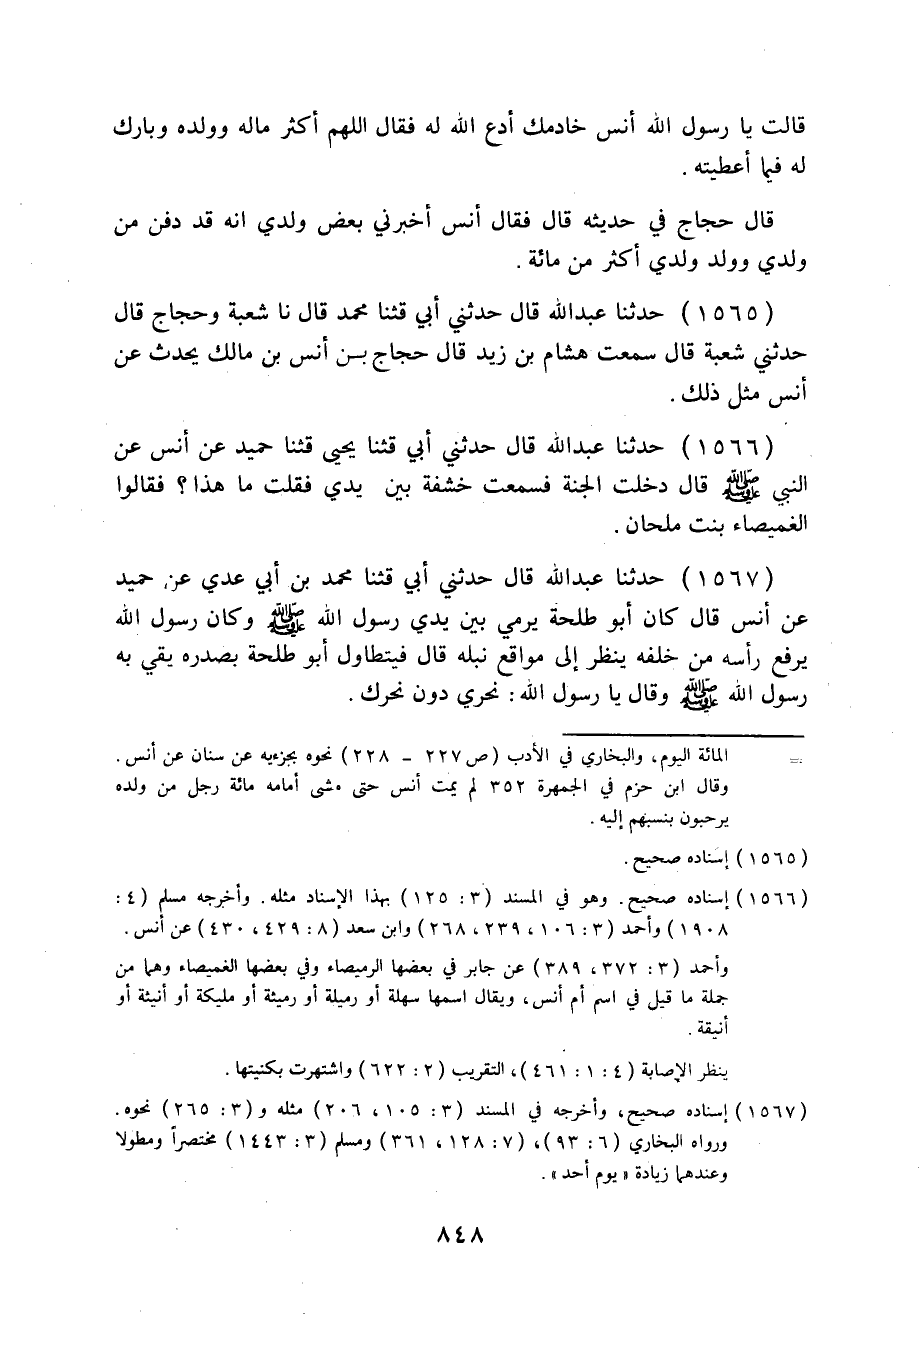 قالت يا رسول الله أنس خادمك أدع الله له فقال اللهم أكثر ماله وولده وبارك
له فيما أعطيته .
قال حجاج في حديثه قال فقال أنس أخبرني بعض ولدي انه قد دفن من
ولدي وولد ولدي أكثر من مائة .
(١٥٦٥) حدثنا عبدالله قال حدثني أبي قثنا محمد قال نا شعبة وحجاج قال
حدثني شعبة قال سمعت هشام بن زيد قال حجاج بـن أنس بن مالك يحدث عن
أنس مثل ذلك .
(١٥٦٦) حدثنا عبدالله قال حدثني أبي قثنا يحيى قثنا حميد عن أنس عن
النبي ﷺ قال دخلت الجنة فسمعت خشفة بين يدي فقلت ما هذا؟ فقالوا
الغميصاء بنت ملحان.
(١٥٦٧) حدثنا عبدالله قال حدثني أبي قثنا محمد بن أبي عدي عن حميد
عن أنس قال كان أبو طلحة يرمي بين يدي رسول الله ﷺ وكان رسول الله
يرفع رأسه من خلفه ينظر إلى مواقع نبله قال فيتطاول أبو طلحة بصدره يقي به
رسول الله ﷺ وقال يا رسول الله: نحري دون نحرك .
= المائة اليوم، والبخاري في الأدب (ص٢٢٧ - ٢٢٨) نحوه بجزءيه عن سنان عن أنس .
وقال ابن حزم في الجمهرة ٣٥٢ لم يمت أنس حتى مشى أمامه مائة رجل من ولده
يرحبون بنسبهم إليه .
(١٥٦٥) إسناده صحيح .
(١٥٦٦) إسناده صحيح. وهو في المسند (٣: ١٢٥) بهذا الإسناد مثله. وأخرجه مسلم (٤:
١٩٠٨) وأحمد (٣: ١٠٦، ٢٣٩، ٢٦٨) وابن سعد (٨: ٤٢٩، ٤٣٠) عن أنس .
وأحمد (٣: ٣٧٢، ٣٨٩) عن جابر في بعضها الرميصاء وفي بعضها الغميصاء وهما من
جملة ما قيل في اسم أم أنس، ويقال اسمها سهلة أو رميلة أو رميثة أو مليكة أو أنيثة أو
أنيقة .
ينظر الإصابة (٤: ١: ٤٦١)، التقريب (٢: ٦٢٢) واشتهرت بكنيتها .
(١٥٦٧) إسناده صحيح، وأخرجه في المسند (٣: ١٠٥، ٢٠٦) مثله و(٣: ٢٦٥) نحوه .
ورواه البخاري (٦: ٩٣)، (٧: ١٢٨، ٣٦١) ومسلم (٣: ١٤٤٣) مختصراً ومطولا
وعندهما زيادة «يوم أحد» .
٨٤٨